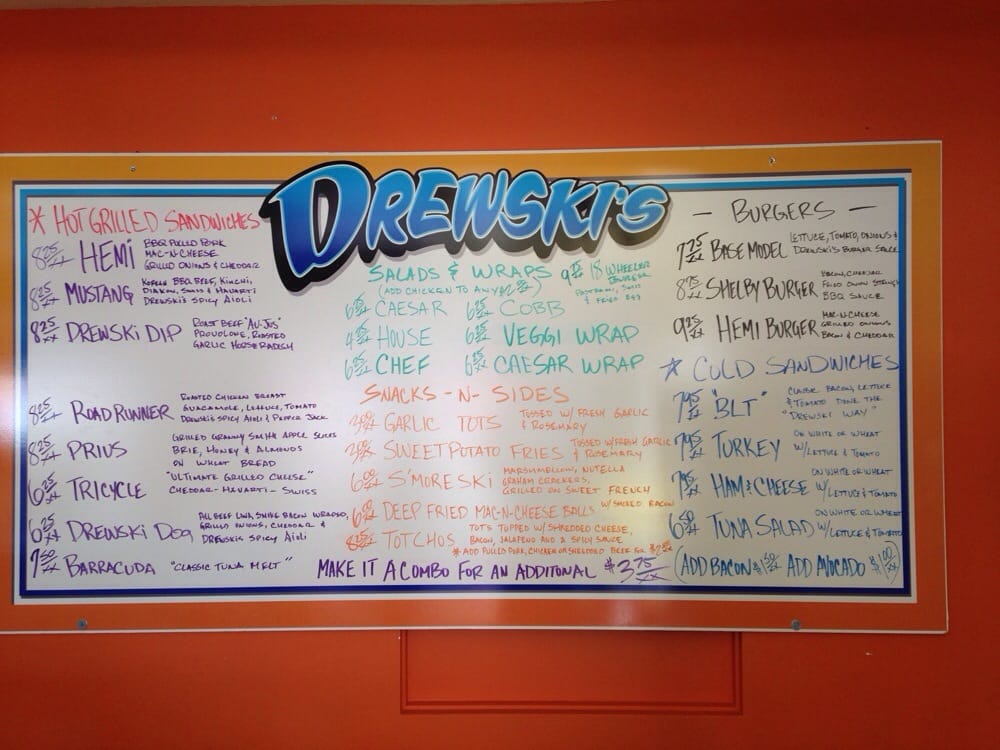 DREWSKI'S
* HOT GRILLED SANDWICHES
8 25/xx HEMI BBQ PULLED PORK
MAC-N-CHEESE
GRILLED ONIONS & CHEDDAR
8 25/xx MUSTANG KOREAN BBQ BEEF, KIMCHI,
DIAKON, SWISS & HAVARTI
DREWSKI'S SPICY AIOLI
8 25/xx DREWSKI DIP ROAST BEEF "AU-JUS"
PROVOLONE, ROASTED
GARLIC HORSERADISH
8 25/xx ROADRUNNER ROASTED CHICKEN BREAST
GUACAMOLE, LETTUCE, TOMATO
DREWSKI'S SPICY AIOLI & PEPPER JACK
8 25/xx PRIUS GRILLED GRANNY SMITH APPLE SLICES
BRIE, HONEY & ALMONDS
ON WHEAT BREAD
6 25/xx TRICYCLE "ULTIMATE GRILLED CHEESE"
CHEDDAR - HAVARTI - SWISS
6 25/xx DREWSKI DOG ALL BEEF LINK, BACON WRAPPED,
GRILLED ONIONS, CHEDDAR &
DREWSKIS SPICY AIOLI
7 50/xx BARRACUDA "CLASSIC TUNA MELT"
SALADS & WRAPS
(ADD CHICKEN TO ANY
6 25/xx CAESAR
4 25/xx HOUSE
6 25/xx CHEF
6 25/xx COBB
6 25/xx VEGGI WRAP
6 25/xx CAESAR WRAP
9 25/xx 18 WHEELER
BURGER
PASTRAMI, SWISS
& FRIED EGG
SNACKS -N- SIDES
GARLIC TOTS TOSSED W/ FRESH GARLIC
& ROSEMARY
SWEET POTATO FRIES TOSSED W/ FRESH GARLIC
& ROSEMARY
6 00/xx S'MORESKI MARSHMELLOW, NUTELLA
GRAHAM CRACKERS,
GRILLED ON SWEET FRENCH
6 00/xx DEEP FRIED MAC-N-CHEESE BALLS W/ SMOKED BACON
8 25/xx TOTCHOS TOTS TOPPED W/ SHREDDED CHEESE,
BACON, JALAPENO AND A SPICY SAUCE
* ADD PULLED PORK, CHICKEN OR SHREDDED BEEF FOR
MAKE IT A COMBO FOR AN ADDITONAL $3 75/xx
— BURGERS —
7 25/xx BASE MODEL LETTUCE, TOMATO, ONIONS &
DREWSKI'S BURGER SAUCE
8 95/xx SHELBY BURGER BACON, CHEDDAR
FRIED ONION STRINGS
BBQ SAUCE
9 25/xx HEMI BURGER MAC-N-CHEESE
GRILLED ONIONS
BACON & CHEDDAR
* COLD SANDWICHES
7 95/xx "BLT" CLASSIC BACON, LETTUCE
& TOMATO DONE THE
"DREWSKI WAY"
7 95/xx TURKEY ON WHITE OR WHEAT
W/ LETTUCE & TOMATO
7 95/xx HAM & CHEESE ON WHITE OR WHEAT
W/ LETTUCE & TOMATO
6 50/xx TUNA SALAD ON WHITE OR WHEAT
W/ LETTUCE & TOMATO
(ADD BACON $1 50/xx ADD AVOCADO $1 00/xx)